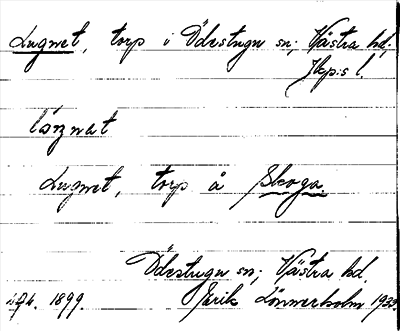 Lugnet, torp i Ödestugu sn; Västra hd;
Jkp:s l.
lóŋnat
Lugnet, torp å Skoga.
Ödestugu sn; Västra hd.
1899. Erik Lönnerholm 1933